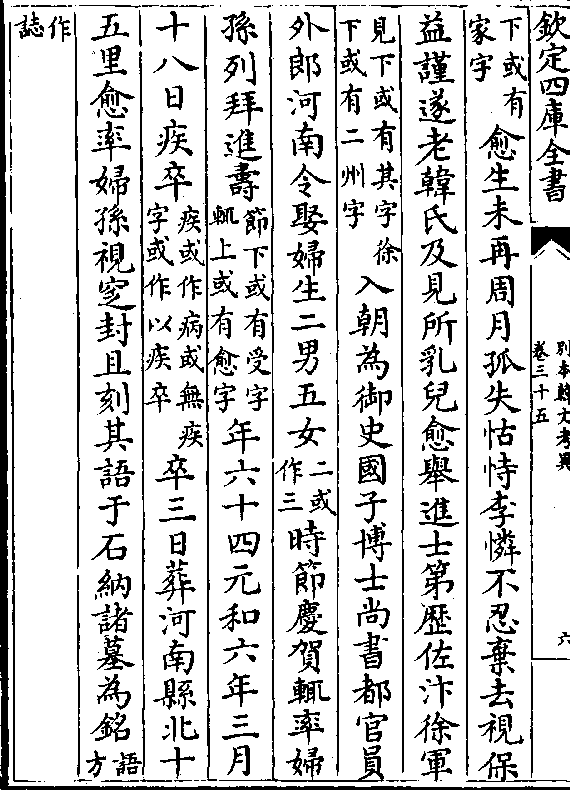 欽定四庫全書
別本韓文考異
卷三十五
六
下或有家字愈生未再周月孤失怙恃李憐不忍棄去視保
益謹遂老韓氏及見所乳兒愈舉進士第歷佐汴徐軍
見下或有其字徐下或有二州字入朝為御史國子博士尚書都官員
外郎河南令娶婦生二男五女二或作三時節慶賀輒率婦
孫列拜進壽節下或有受字輒上或有愈字年六十四元和六年三月
十八日疾卒疾或作病或無疾字或作以疾卒卒三日葬河南縣北十
五里愈率婦孫視窆封且刻其語于石納諸墓為銘語方
作誌